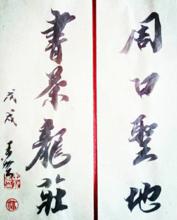 周口聖地
書茶龍莊
戊戌